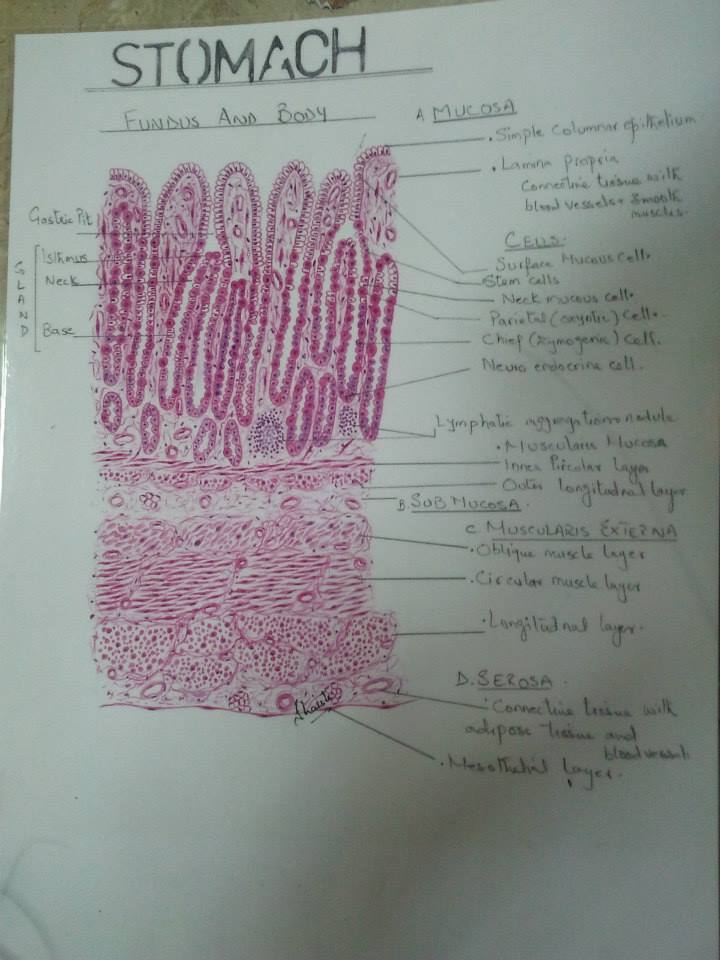 STOMACH
FUNDUS AND BODY
A MUCOSA
. Simple columnar epithelium
. Lamina propria
Connective tissue with
blood vessels + smooth
muscles.
Gastric Pit
GLAND
Isthmus
Neck
Base
CELLS.
Surface Mucous Cell.
Stem cells
Neck mucous cell.
Parietal (oxyntic) Cell.
Chief (zymogenic) Cell.
Neuro endocrine cell.
Lymphatic aggregation nodule
. Muscularis Mucosa
Inner Circular Layer
Outer Longitudnal layer
B. SUB MUCOSA.
C. MUSCULARIS EXTERNA
. Oblique muscle layer
. Circular muscle layer
. Longitudnal layer.
D. SEROSA.
. Connective tissue with
adipose tissue and
blood vessels
. Mesothelial Layer.